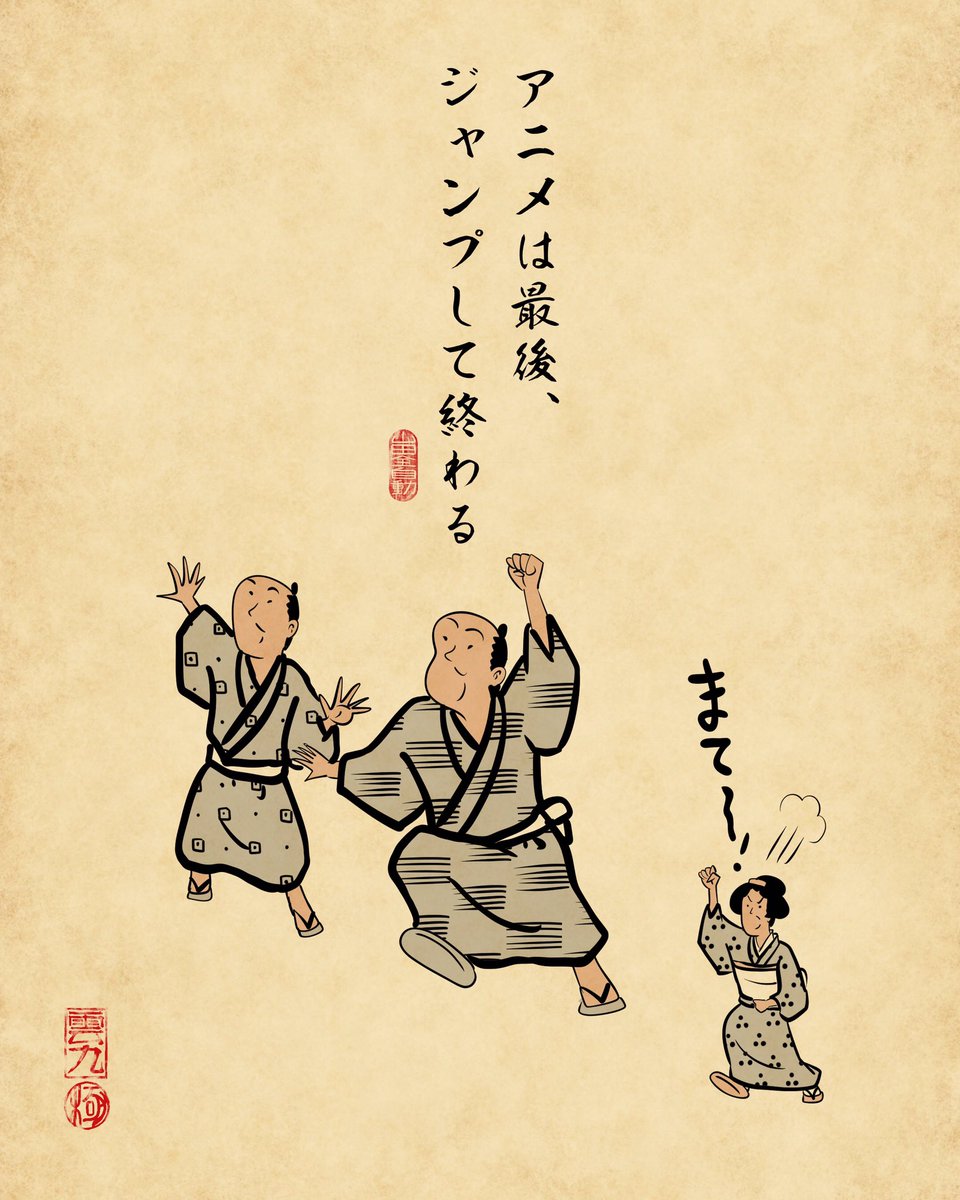 アニメは最後、
ジャンプして終わる
まて〜!